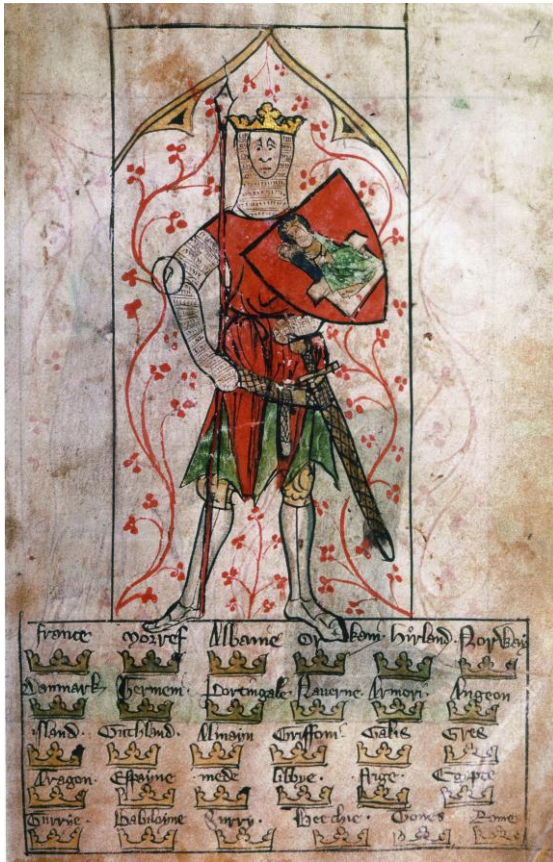 france norref Albanie Orkani hirland Norway
Danmark hermeni Portingale Nauerne Armori Angeon
island Guthland Almain Griffoni Galis Gres
Aragon Espaine mede libye frige Egipte
Surrye Babiloine